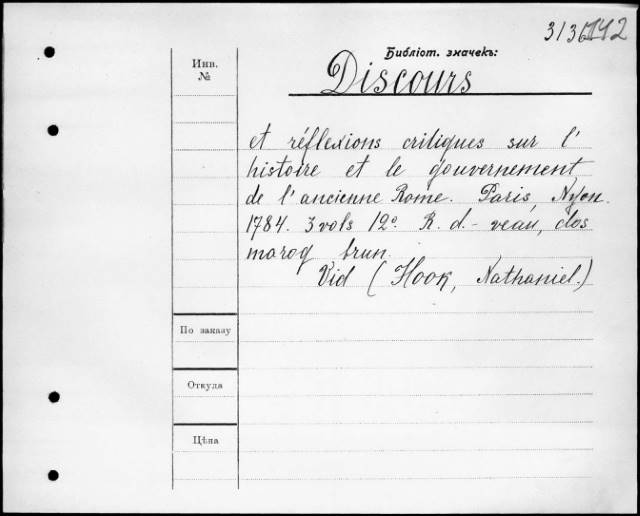 3136142
Библіот. значекъ:
Инв.
№
Discours
et réflexions critiques sur l'
histoire et le gouvernement
de l'ancienne Rome. Paris, Nyon.
1784. 3 vols 12º. R. d.-veau, dos
maroq brun.
Vid (Hook, Nathaniel.)
По заказу
Откуда
Цѣна